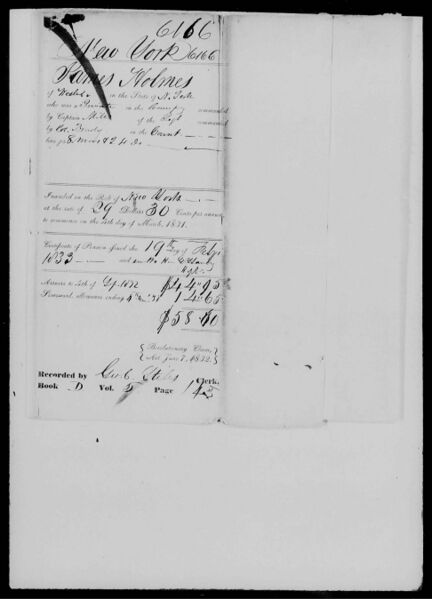 6166
New York 6166
James Holmes
of in the State of N. York
who was a Private in the Company commanded
by Captain of the Regt commanded
by Col. in the
for 8 mos & 24 ds
Inscribed on the Roll of New York
at the rate of 29 Dollars 30 Cents per annum
to commence on the 4th day of March, 1831.
Certificate of Pension issued the 19th day of Feby
1833
Arrears to 4th of Sep. 1832 $
Semi-anl. allowance ending 4 14.65
$58.60
Revolutionary Claim,
Act June 7, 1832.
Recorded by Clerk,
Book D Vol. Page